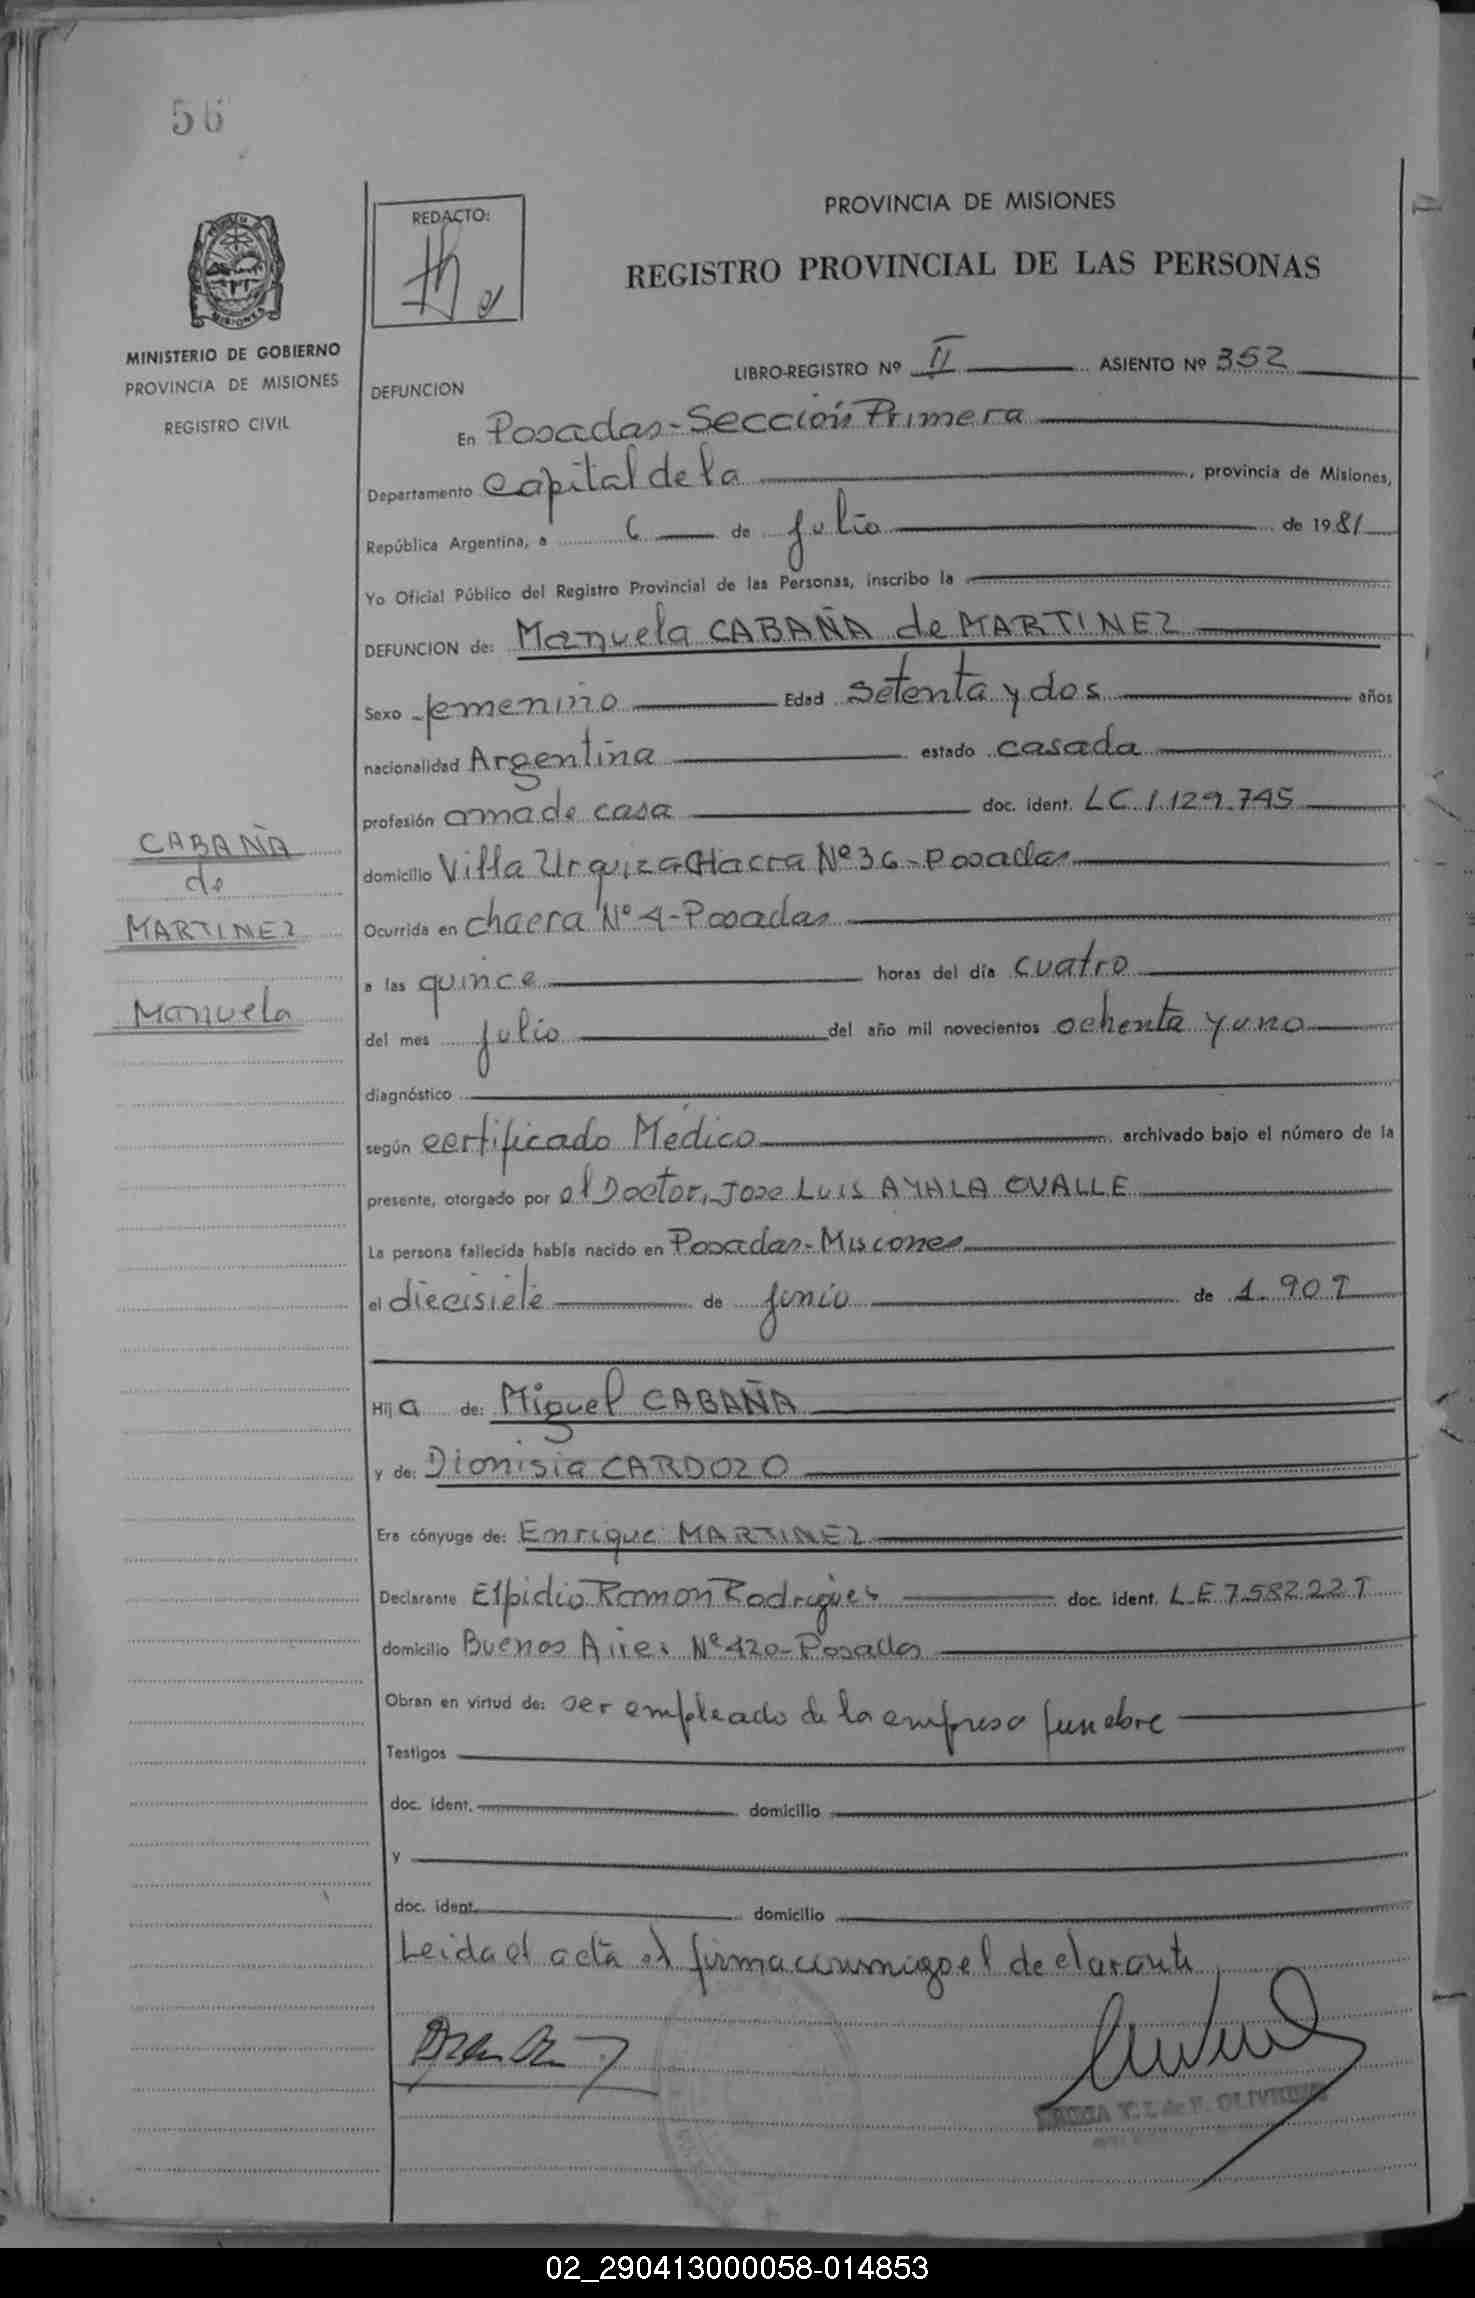 56
PROVINCIA DE MISIONES
REDACTO:
REGISTRO PROVINCIAL DE LAS PERSONAS
MISIONES
MINISTERIO DE GOBIERNO
PROVINCIA DE MISIONES
REGISTRO CIVIL
LIBRO-REGISTRO Nº II ASIENTO Nº 352
DEFUNCION
En Posadas-Sección Primera
Departamento Capital de la, provincia de Misiones,
República Argentina, a 6 de julio de 1981
Yo Oficial Público del Registro Provincial de las Personas, inscribo la
DEFUNCION de: Manuela CABAÑA de MARTINEZ
Sexo femenino Edad setenta y dos años
nacionalidad Argentina estado casada
profesión ama de casa doc. ident. LC 1.129.745
CABAÑA
de
MARTINEZ
Manuela
domicilio Villa Urquiza-Chacra Nº 36-Posadas
Ocurrida en chacra Nº 4-Posadas
a las quince horas del día cuatro
del mes julio del año mil novecientos ochenta y uno
diagnóstico
según certificado Médico archivado bajo el número de la
presente, otorgado por el Doctor, Jose LUIS AYALA OVALLE
La persona fallecida había nacido en Posadas-Misiones
el diecisiete de junio de 1.909
Hija de: Miguel CABAÑA
y de: Dionisia CARDOZO
Era cónyuge de: Enrique MARTINEZ
Declarante Elpidio Ramon Rodrigues doc. ident. L.E 7.582.227
domicilio Buenos Aires Nº 420-Posadas
Obran en virtud de: ser empleado de la empresa funebre
Testigos
doc. ident. domicilio
y
doc. ident. domicilio
Leida el acta firma conmigo el declarante
OLIVEIRA
02_290413000058-014853